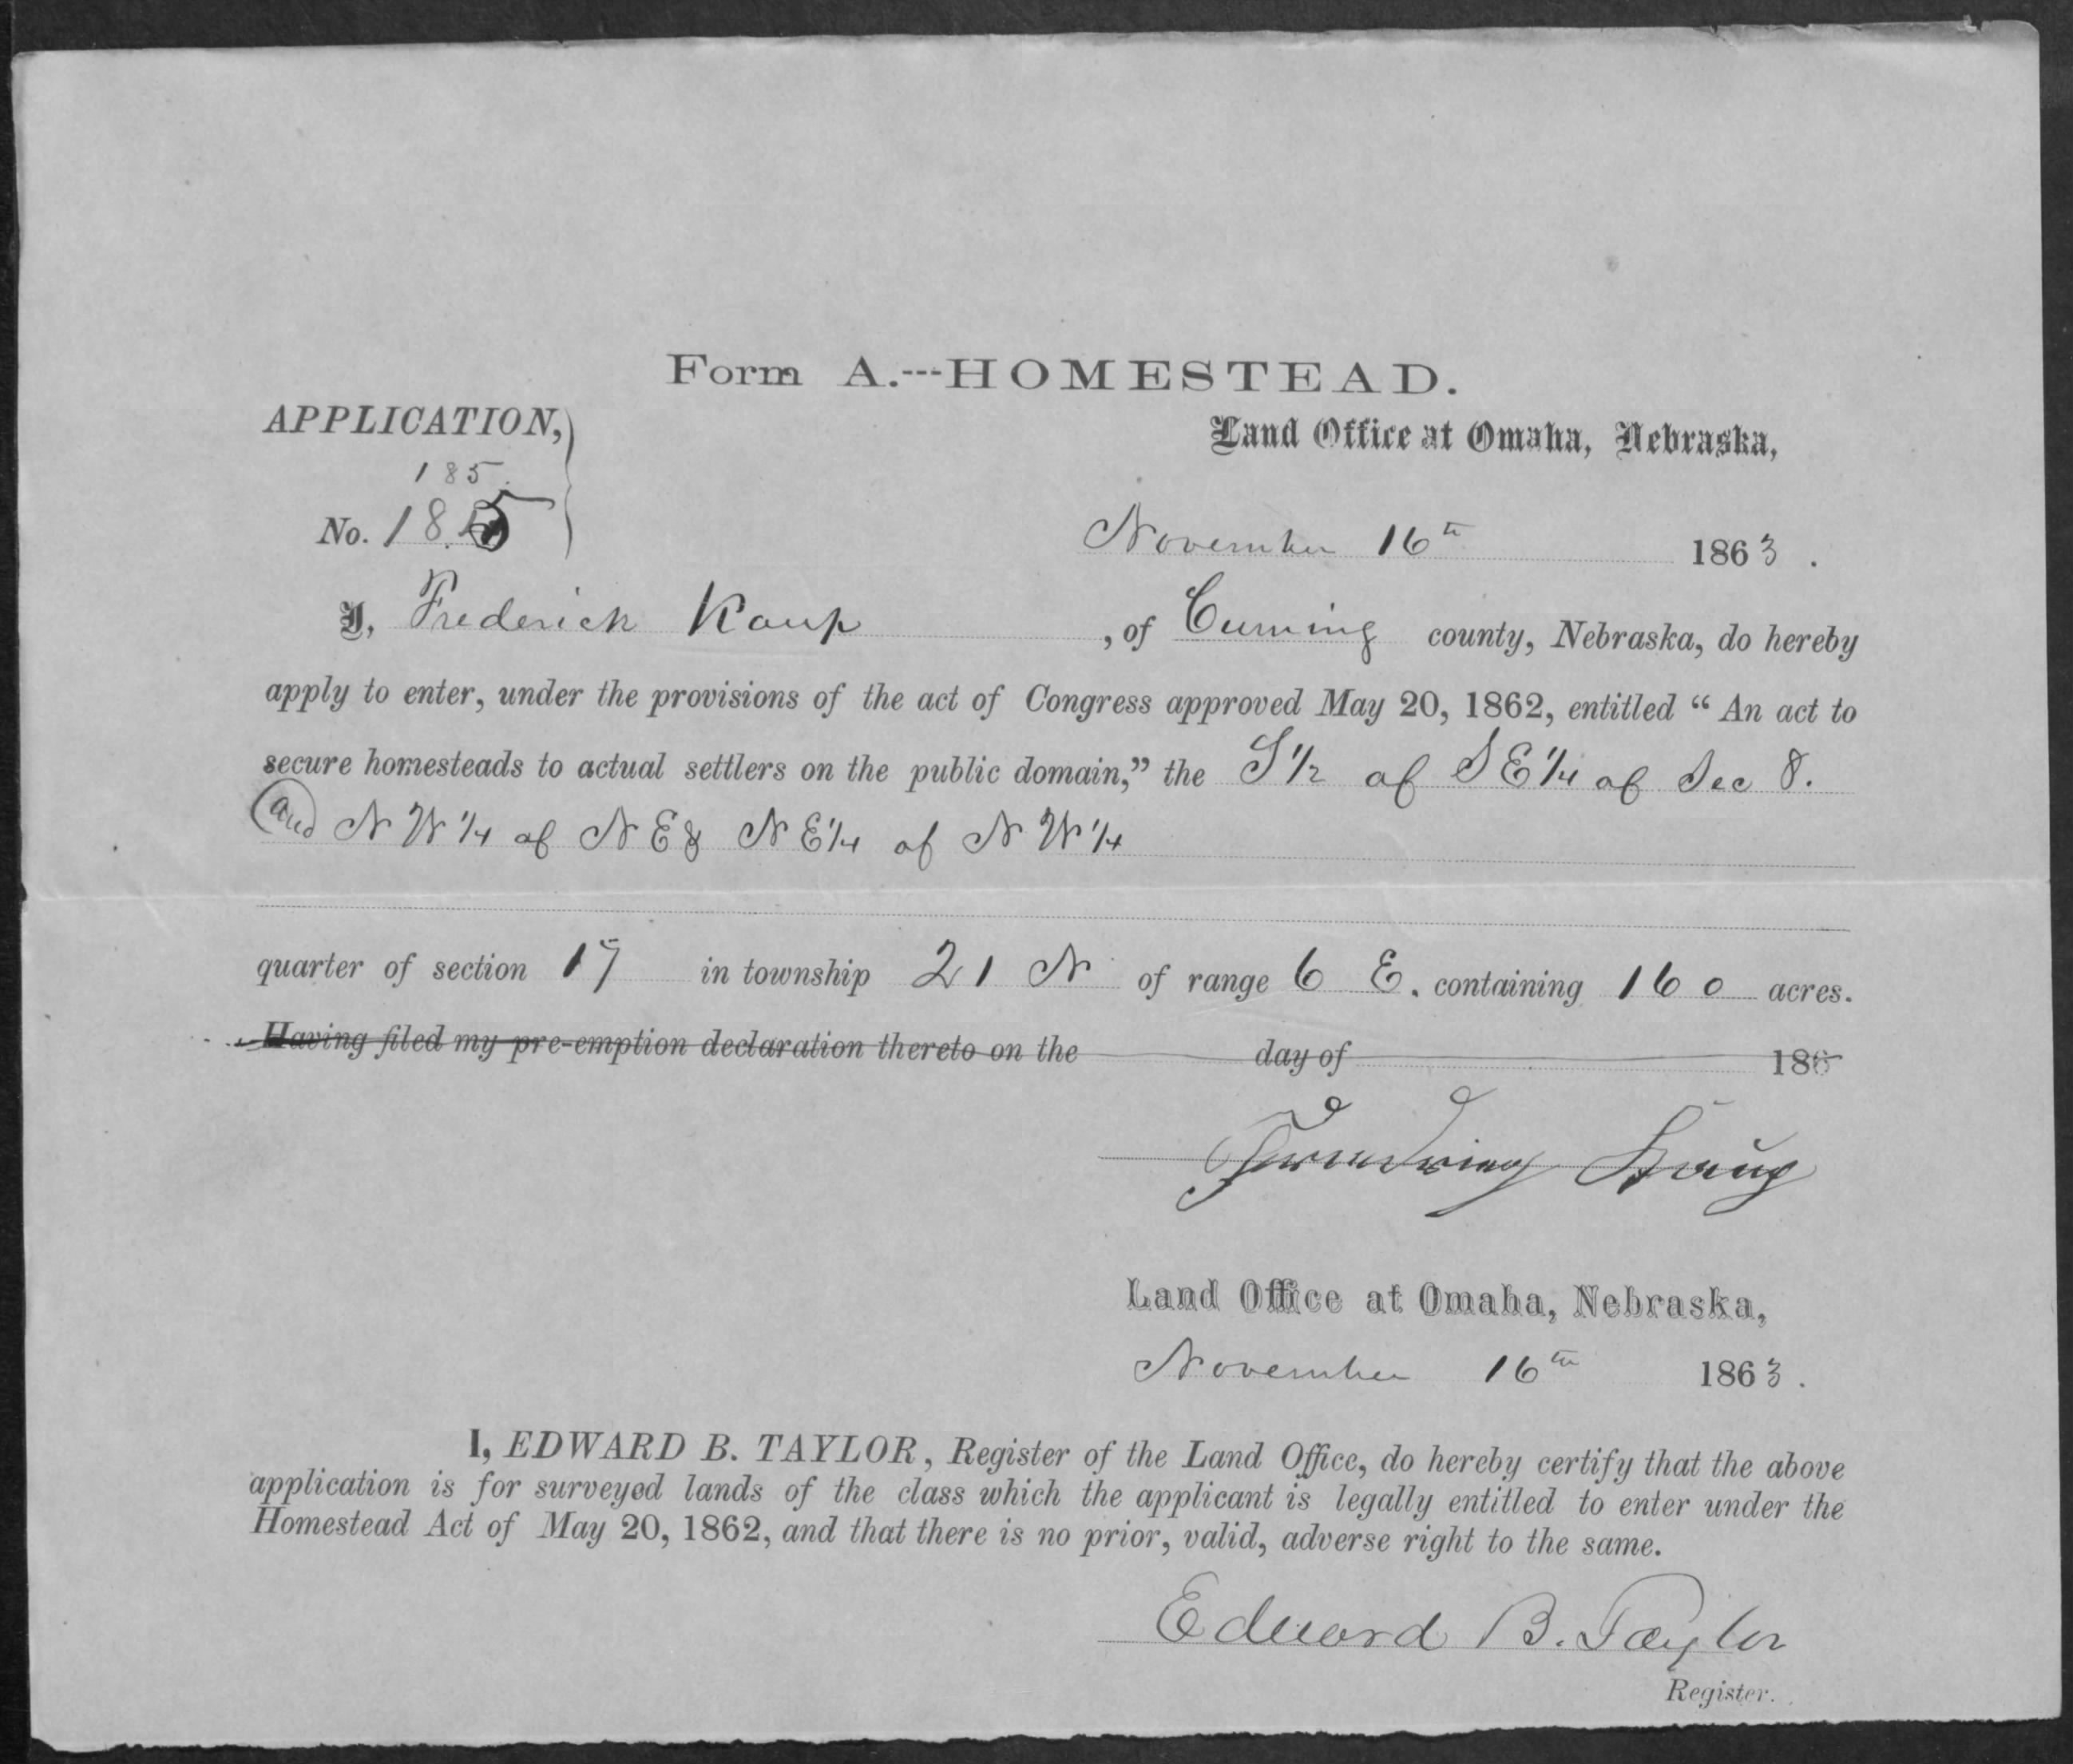 Form A.---HOMESTEAD.
APPLICATION,
Land Office at Omaha, Nebraska,
185.
No. 185
November 16th 1863.
I, Frederick Kaup, of Cuming county, Nebraska, do hereby
apply to enter, under the provisions of the act of Congress approved May 20, 1862, entitled “An act to
secure homesteads to actual settlers on the public domain,” the S 1/2 of S E 1/4 of Sec 8.
and N W 1/4 of N E & N E 1/4 of N W 1/4
quarter of section 17 in township 21 N of range 6 E. containing 160 acres.
Having filed my pre-emption declaration thereto on the day of 186
Kaup
Land Office at Omaha, Nebraska,
November 16th 1863.
I, EDWARD B. TAYLOR, Register of the Land Office, do hereby certify that the above
application is for surveyed lands of the class which the applicant is legally entitled to enter under the
Homestead Act of May 20, 1862, and that there is no prior, valid, adverse right to the same.
Edward B. Taylor
Register.